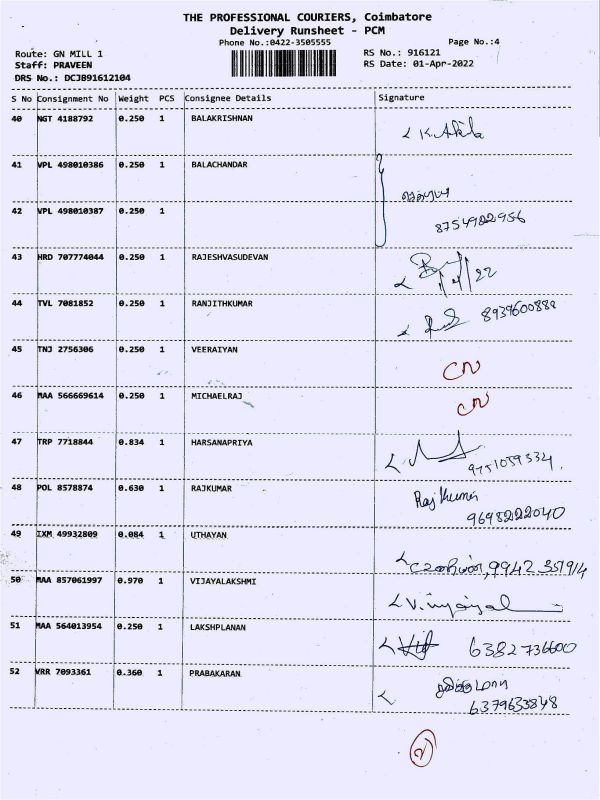 THE PROFESSIONAL COURIERS, Coimbatore
Delivery Runsheet - PCM
Phone No.:0422-3505555 Page No.:4
Route: GN MILL 1 RS No.: 916121
Staff: PRAVEEN RS Date: 01-Apr-2022
DRS No.: DCJB91612104
S No Consignment No Weight PCS Consignee Details Signature
40 NGT 4188792 0.250 1 BALAKRISHNAN K. Akila
41 VPL 498010386 0.250 1 BALACHANDAR
42 VPL 498010387 0.250 1 8754922956
43 HRD 707774044 0.250 1 RAJESHVASUDEVAN
44 TVL 7081852 0.250 1 RANJITHKUMAR 8939600888
45 TNJ 2756306 0.250 1 VEERAIYAN CN
46 MAA 566669614 0.250 1 MICHAELRAJ CN
47 TRP 7718844 0.834 1 HARSANAPRIYA 9751059334
48 POL 8578874 0.630 1 RAJKUMAR Raj Kumar
9698222040
49 IXM 49932809 0.084 1 UTHAYAN 9942351914
50 MAA 857061997 0.970 1 VIJAYALAKSHMI
51 MAA 564013954 0.250 1 LAKSHPLANAN 6382736600
52 VRR 7093361 0.360 1 PRABAKARAN
6379633848